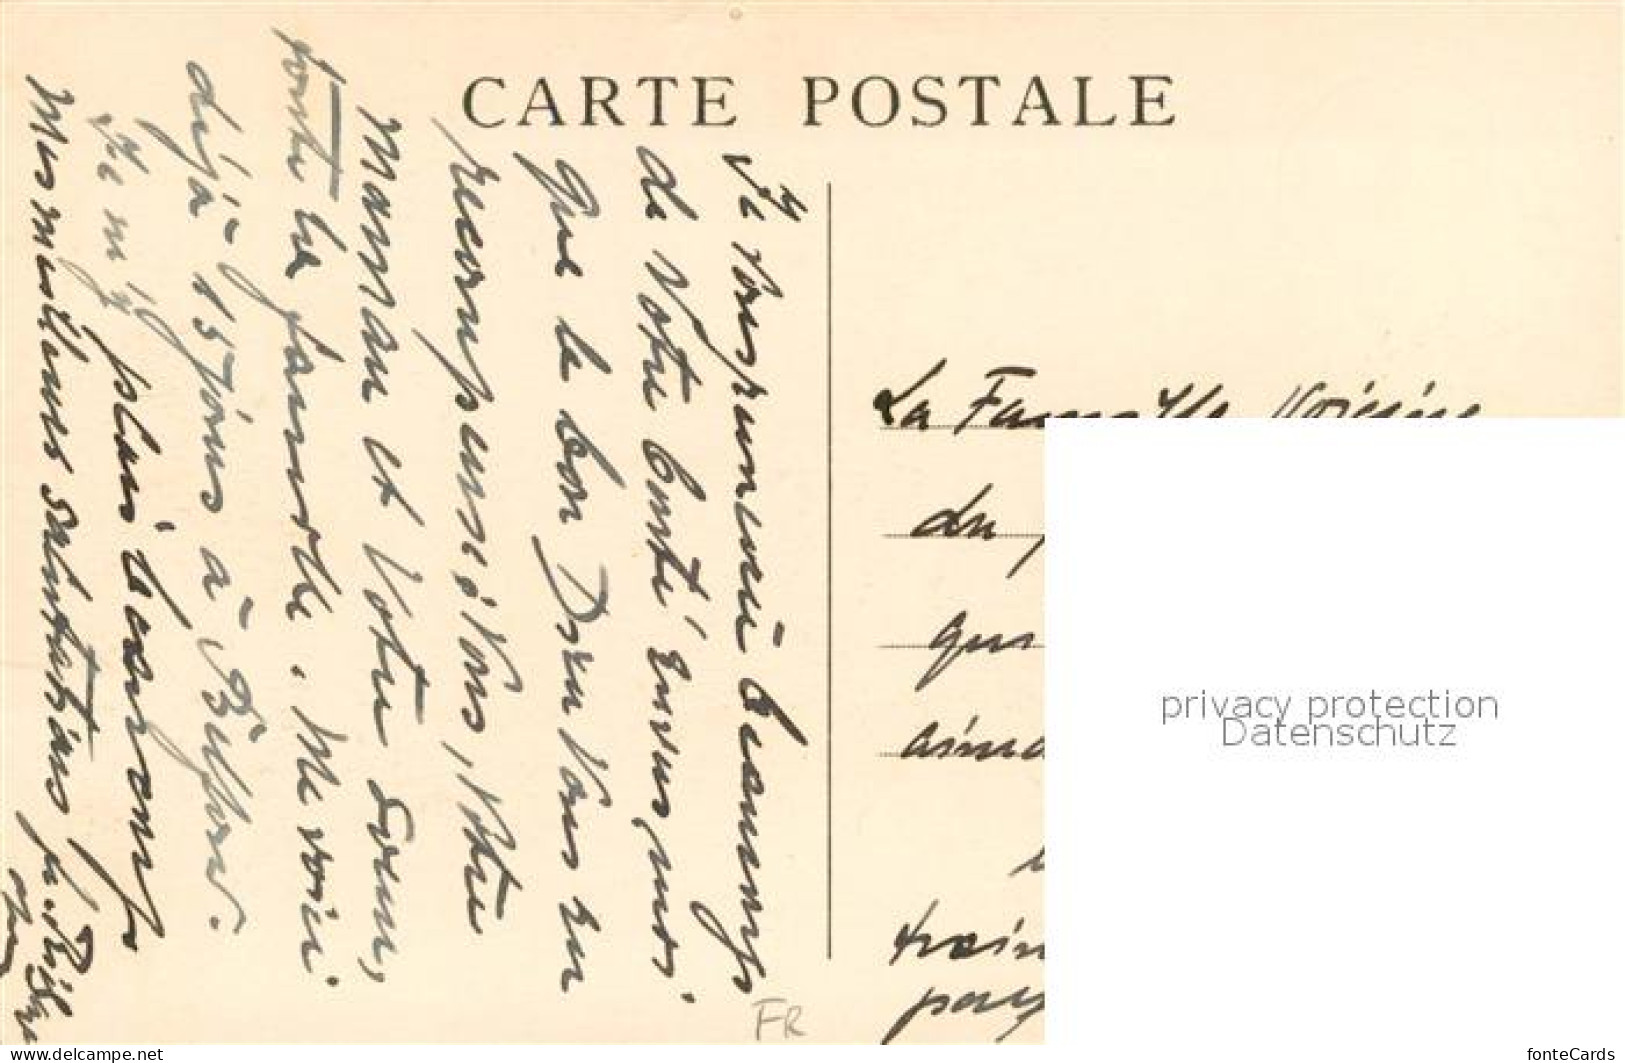 CARTE POSTALE
Je vous remercie beaucoup
de Votre bonté envers moi
que le bon Dieu Vous en
récompense. Vous, Votre
Maman et Votre Sœur,
toute la famille. Me voici
déjà 15 jours à
Je m'y plais beaucoup
Mes meilleures salutations
La Famille
du
qui
train
pays
FR
privacy protection
Datenschutz
www.delcampe.net
fonteCards